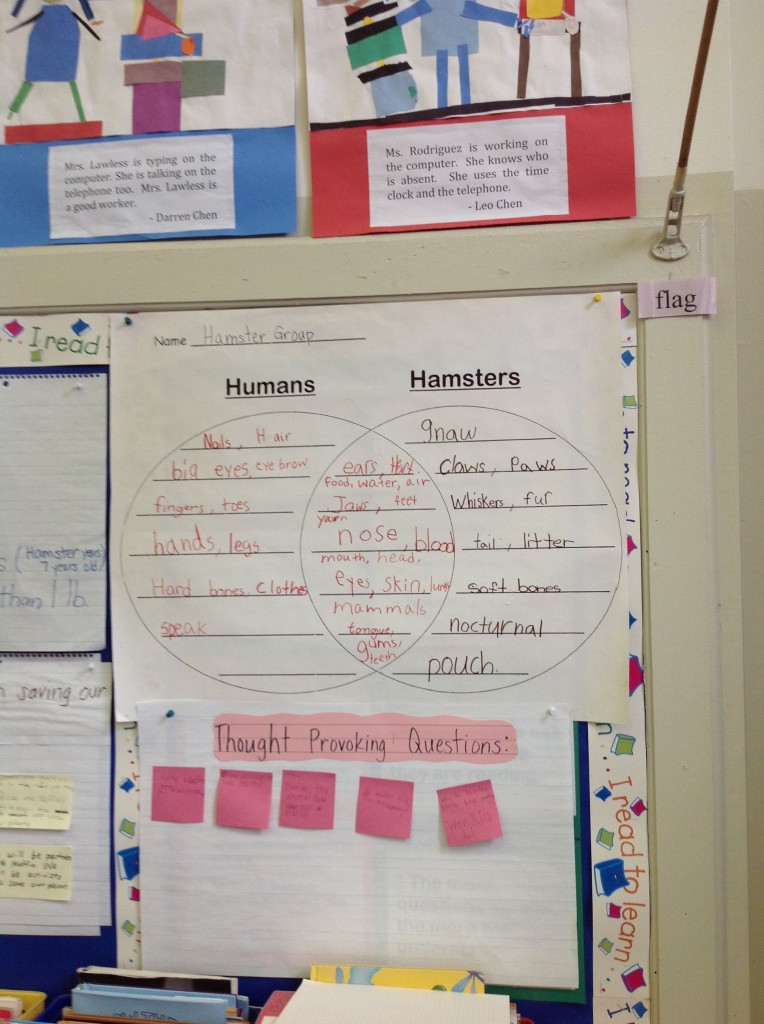 Mrs. Lawless is typing on the
computer. She is talking on the
telephone too. Mrs. Lawless is
a good worker.
- Darren Chen
Ms. Rodriguez is working on
the computer. She knows who
is absent. She uses the time
clock and the telephone.
- Leo Chen
flag
I read
Name Hamster Group
Humans
Hamsters
Nails, Hair
big eyes, eye brow
fingers, toes
hands, legs
Hard bones, Clothes
speak
ears,
food, water, air
Jaws, feet
yawn
nose, blood
mouth, head,
eyes, skin, lungs
mammals
tongue,
gums,
teeth
gnaw
Claws, Paws
Whiskers, fur
tail, litter
soft bones
nocturnal
pouch.
(Hamster years)
7 years old
than 1 lb.
saving our
Thought Provoking Questions:
will be
I read to learn
I